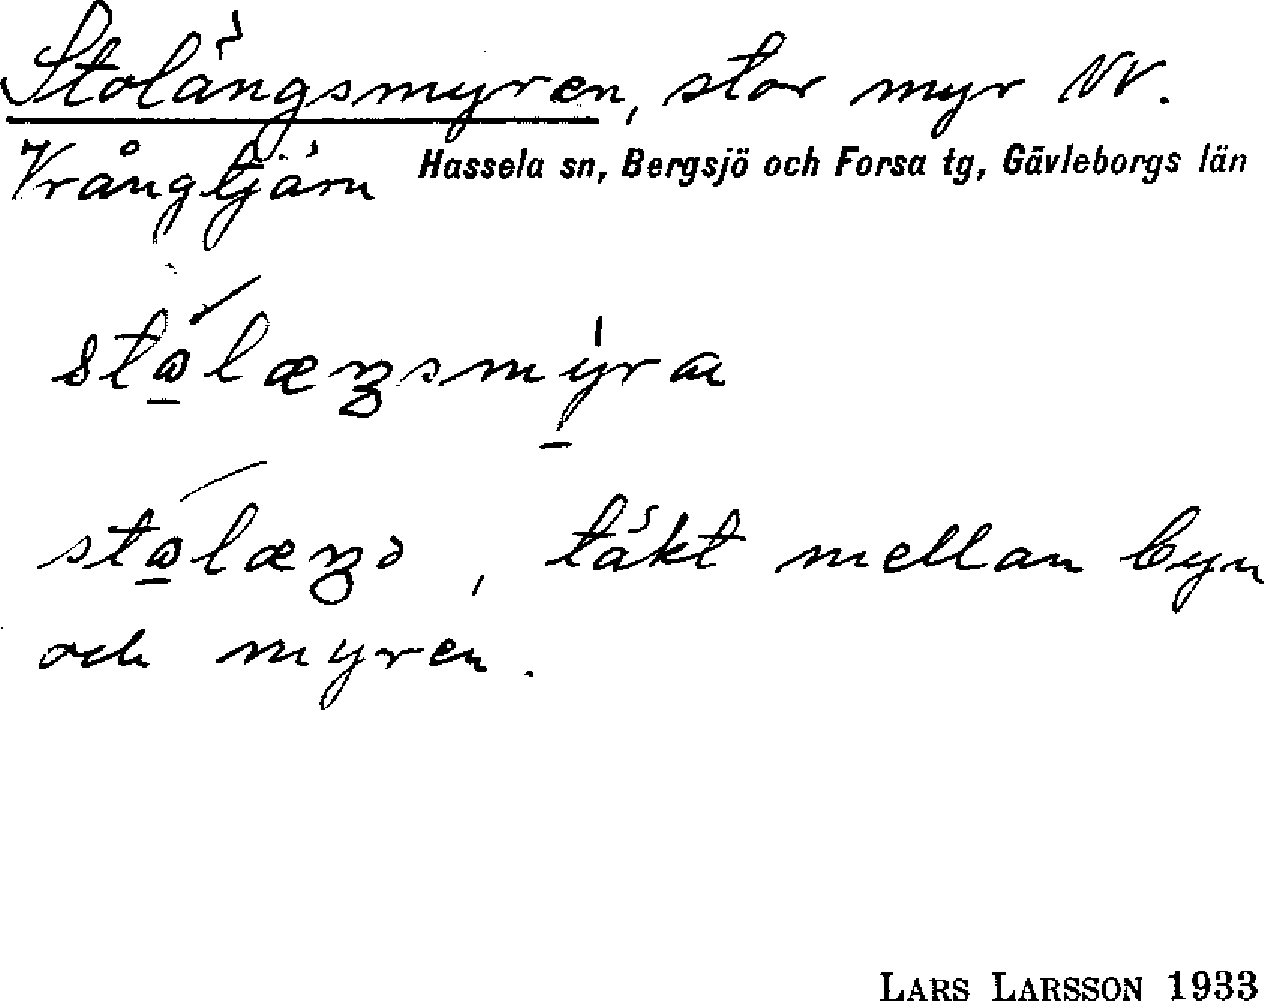 Stolängsmyren, stor myr NV.
Vrångtjärn Hassela sn, Bergsjö och Forsa tg, Gävleborgs län
, täkt mellan byn
och myren.
LARS LARSSON 1933